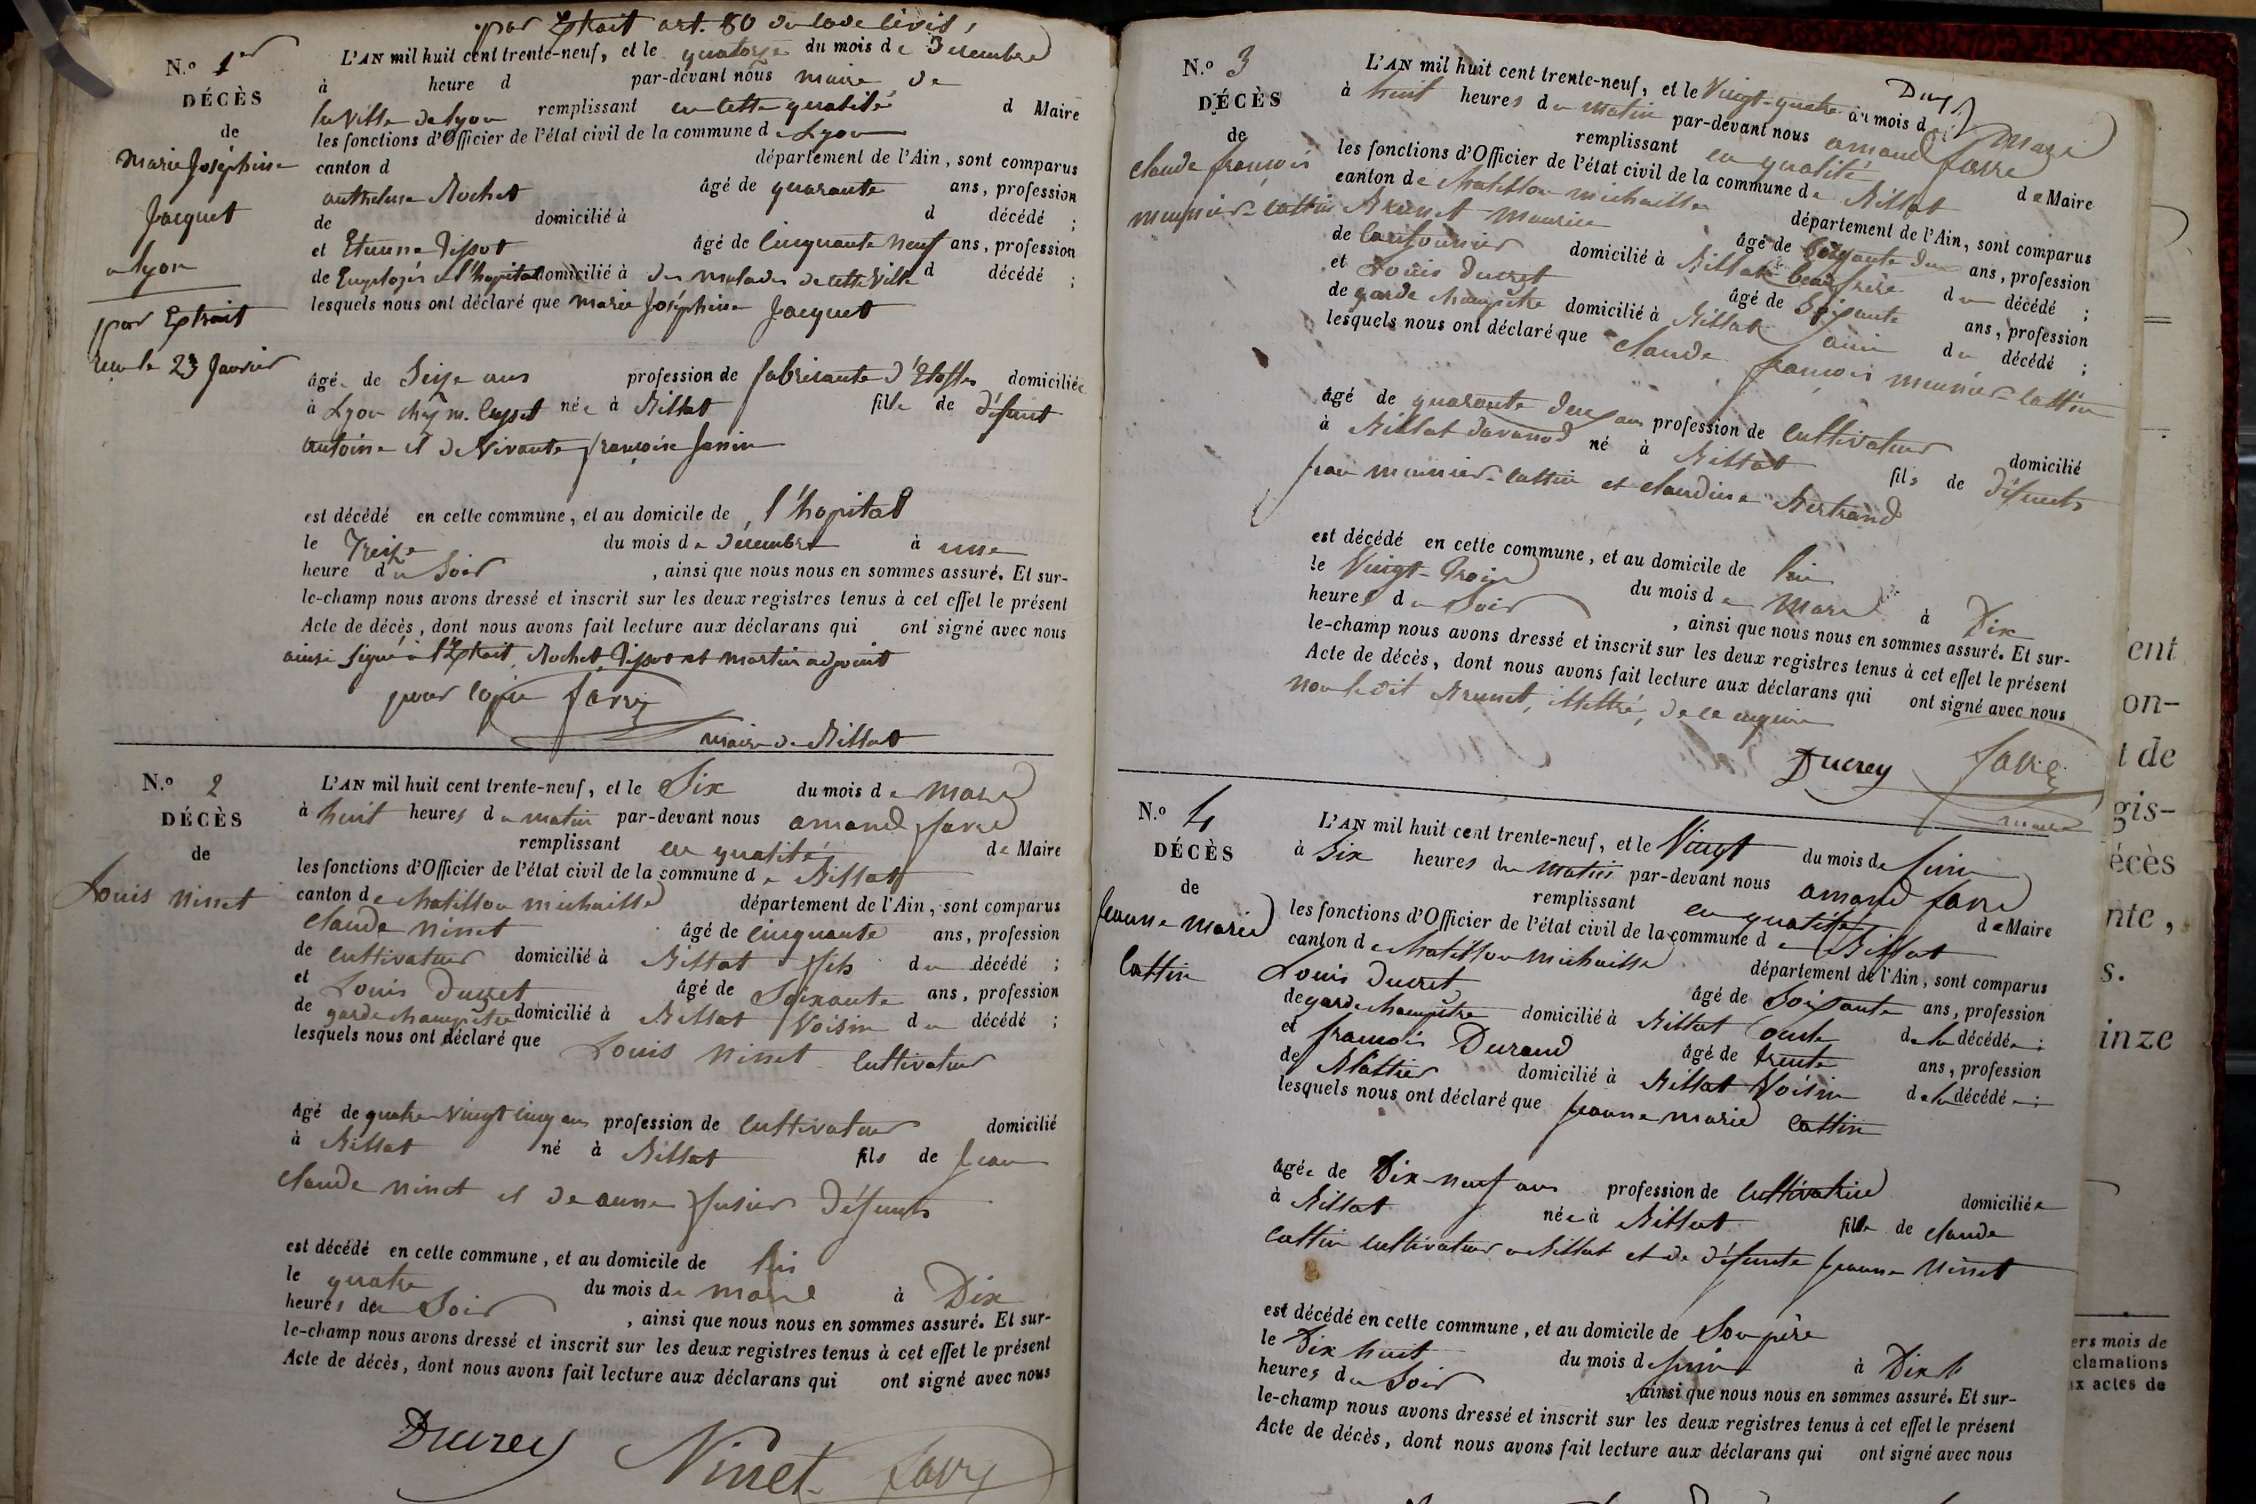 par Extrait art. 80 du Code Civil,
N.o 1er
DÉCÈS
de
Marie Joséphine
Jacquet
a Lyon
par Extrait
reçu le 23 Janvier
L'AN mil huit cent trente-neuf, et le quatorze du mois de Décembre
à heure d par-devant nous maire de
la Ville de Lyon remplissant en cette qualité d Maire
les fonctions d'Officier de l'état civil de la commune de Lyon
canton d département de l'Ain, sont comparus
anthelme Rochet âgé de quarante ans, profession
de domicilié à d décédé ;
et Etienne Tissot âgé de Cinquante neuf ans, profession
de Employés à l'hopital domicilié à des malades de cette Ville d décédé ;
lesquels nous ont déclaré que Marie Joséphine Jacquet
âgée de Seize ans profession de fabricante d'Etoffes domiciliée
à Lyon chez m. née à Billiat fille de défunt
antoine et de Vivante françoise Janin
est décédé en cette commune, et au domicile de l'hopital
le Treize du mois de Décembre à une
heure du Soir , ainsi que nous nous en sommes assuré. Et sur-
le-champ nous avons dressé et inscrit sur les deux registres tenus à cet effet le présent
Acte de décès, dont nous avons fait lecture aux déclarans qui ont signé avec nous
ainsi signé à l'Extrait, Rochet, Tissot et martin adjoint
pour copie favre
maire de Billiat
N.o 2
DÉCÈS
de
Louis Ninet
L'AN mil huit cent trente-neuf, et le Six du mois de mars
à huit heures du matin par-devant nous amand favre
remplissant en qualité de Maire
les fonctions d'Officier de l'état civil de la commune de Billiat
canton de chatillon michaille département de l'Ain, sont comparus
claude Ninet âgé de Cinquante ans, profession
de cultivateur domicilié à Billiat fils du décédé ;
et Louis Ducret âgé de Soixante ans, profession
de garde champêtre domicilié à Billiat Voisin du décédé ;
lesquels nous ont déclaré que Louis Ninet cultivateur
âgé de quatre Vingt cinq ans profession de cultivateur domicilié
à Billiat né à Billiat fils de Jean
claude Ninet et de anne fusier défunts
est décédé en cette commune, et au domicile de lui
le quatre du mois de mars à Dix
heures du Soir , ainsi que nous nous en sommes assuré. Et sur-
le-champ nous avons dressé et inscrit sur les deux registres tenus à cet effet le présent
Acte de décès, dont nous avons fait lecture aux déclarans qui ont signé avec nous
Ducrey Ninet favre
N.o 3
DÉCÈS
de
claude françois
meunier-cattin
L'AN mil huit cent trente-neuf, et le Vingt-quatre du mois de mars
à huit heures du matin par-devant nous amand favre
remplissant en qualité de Maire
les fonctions d'Officier de l'état civil de la commune de Billiat
canton de chatillon michaille département de l'Ain, sont comparus
Brunet Maurice âgé de Soixante deux ans, profession
de domicilié à Billiat beau frère du décédé ;
et Louis Ducret âgé de Soixante ans, profession
de garde champêtre domicilié à Billiat ami du décédé ;
lesquels nous ont déclaré que claude françois meunier-cattin
âgé de quarante deux ans profession de cultivateur domicilié
à Billiat davanod né à Billiat fils de défunts
Jean meunier-cattin et claudine Bertrand
est décédé en cette commune, et au domicile de lui
le Vingt-trois du mois de mars à Dix
heures du Soir , ainsi que nous nous en sommes assuré. Et sur-
le-champ nous avons dressé et inscrit sur les deux registres tenus à cet effet le présent
Acte de décès, dont nous avons fait lecture aux déclarans qui ont signé avec nous
non le dit Brunet, illettré, de ce enquis
Ducrey favre
maire
N.o 4
DÉCÈS
de
Jeanne Marie
Cattin
L'AN mil huit cent trente-neuf, et le Vingt du mois de Juin
à Six heures du matin par-devant nous amand favre
remplissant en qualité de Maire
les fonctions d'Officier de l'état civil de la commune de Billiat
canton de chatillon michaille département de l'Ain, sont comparus
Louis Ducret âgé de Soixante ans, profession
de garde champêtre domicilié à Billiat oncle de la décédée ;
et françois Durand âgé de trente ans, profession
de Plâtrier domicilié à Billiat Voisin de la décédée ;
lesquels nous ont déclaré que Jeanne Marie Cattin
âgée de Dix-neuf ans profession de cultivatrice domiciliée
à Billiat née à Billiat fille de claude
cattin cultivateur a Billiat et de défunte Jeanne Ninet
est décédé en cette commune, et au domicile de Son père
le Dix huit du mois de Juin à Dix h
heures du Soir , ainsi que nous nous en sommes assuré. Et sur-
le-champ nous avons dressé et inscrit sur les deux registres tenus à cet effet le présent
Acte de décès, dont nous avons fait lecture aux déclarans qui ont signé avec nous
ent
on-
t de
gis-
écès
nte,
s.
inze
ers mois de
clamations
ux actes de